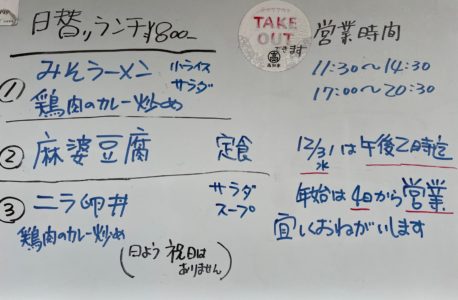 日替リランチ¥800-
TAKE
OUT
できます
営業時間
11:30〜14:30
17:00〜20:30
① みそラーメン 小ライス
サラダ
鶏肉のカレー炒め
② 麻婆豆腐 定食
③ ニラ卵丼 サラダ
スープ
鶏肉のカレー炒め
(日よう 祝日は
ありません)
12/31は午後2時迄
水
年始は4日から営業
宜しくおねがいします